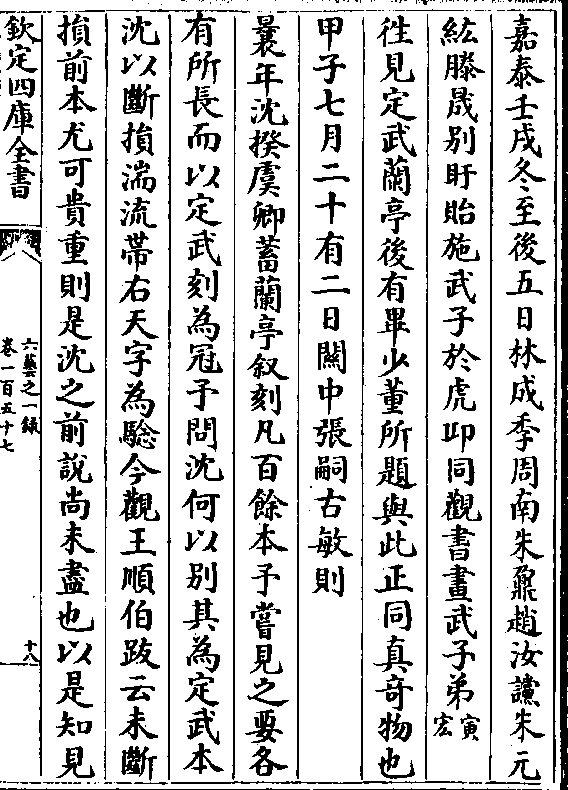 嘉泰壬戌冬至後五日林成季周南朱鼐趙汝讜朱元
紘滕晟别盱眙施武子於虎邱同觀書畫武子弟寅宏
徃見定武蘭亭後有畢少董所題與此正同真竒物也
甲子七月二十有二日關中張嗣古敏則
曩年沈揆虞卿蓄蘭亭叙刻凡百餘本予嘗見之要各
有所長而以定武刻為冠予問沈何以别其為定武本
沈以斷損湍流帶右天字為驗今觀王順伯跋云未斷
損前本尤可貴重則是沈之前說尚未盡也以是知見
欽定四庫全書
六藝之一録
卷一百五十七
十八